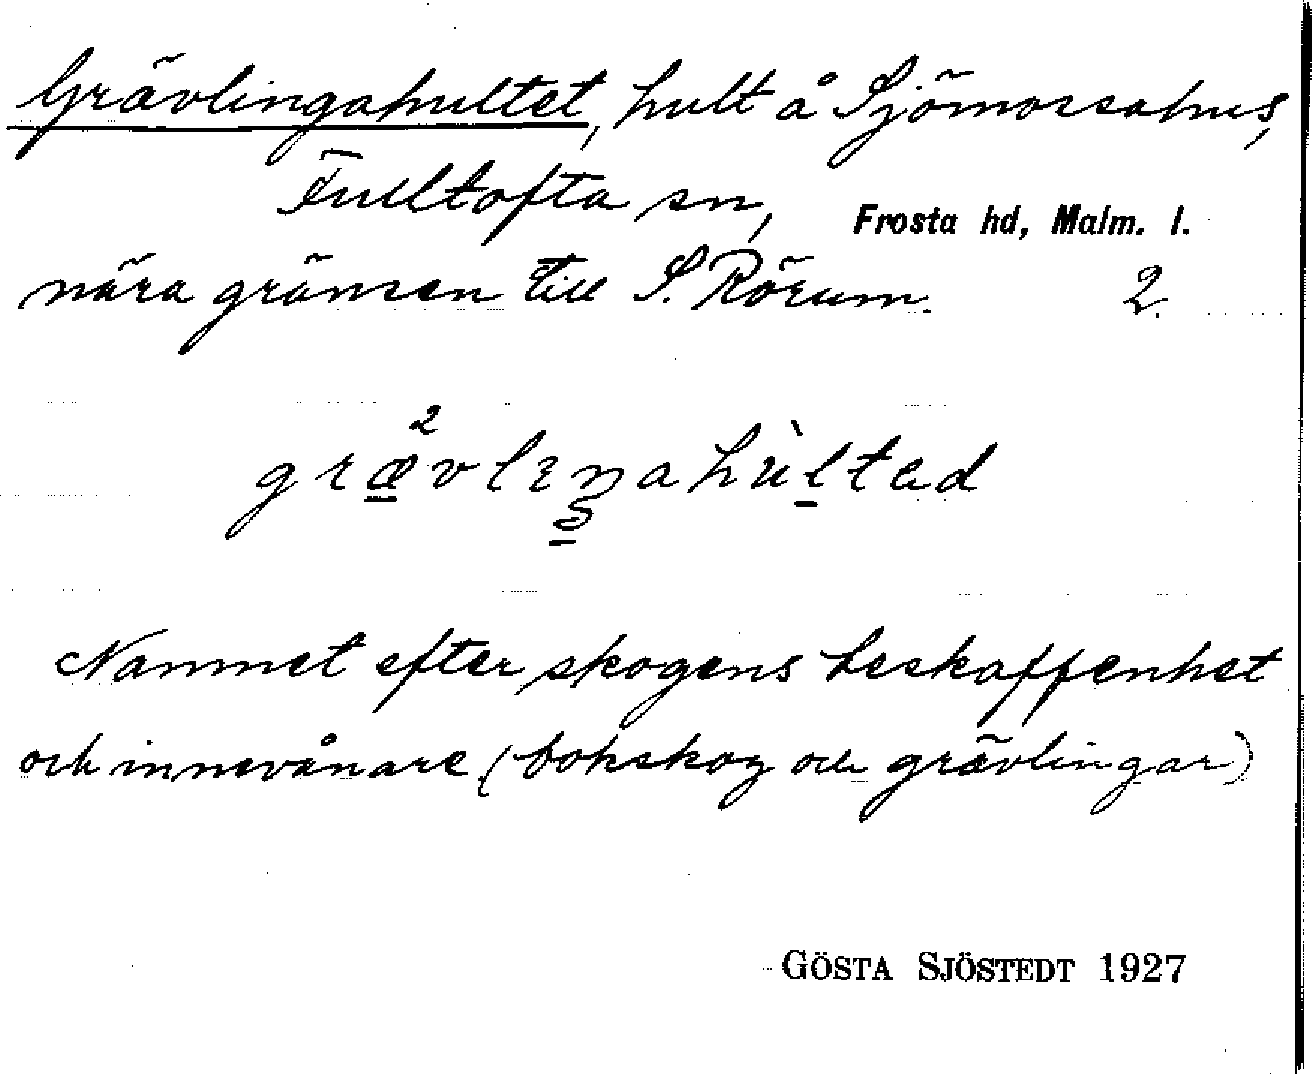 Grävlingahultet, hult å Sjömossahus,
Fulltofta sn, Frosta hd, Malm. l.
nära gränsen till S. Rörum. 2.
Namnet efter skogens beskaffenhet
och innevånare (bokskog och grävlingar)
GÖSTA SJÖSTEDT 1927